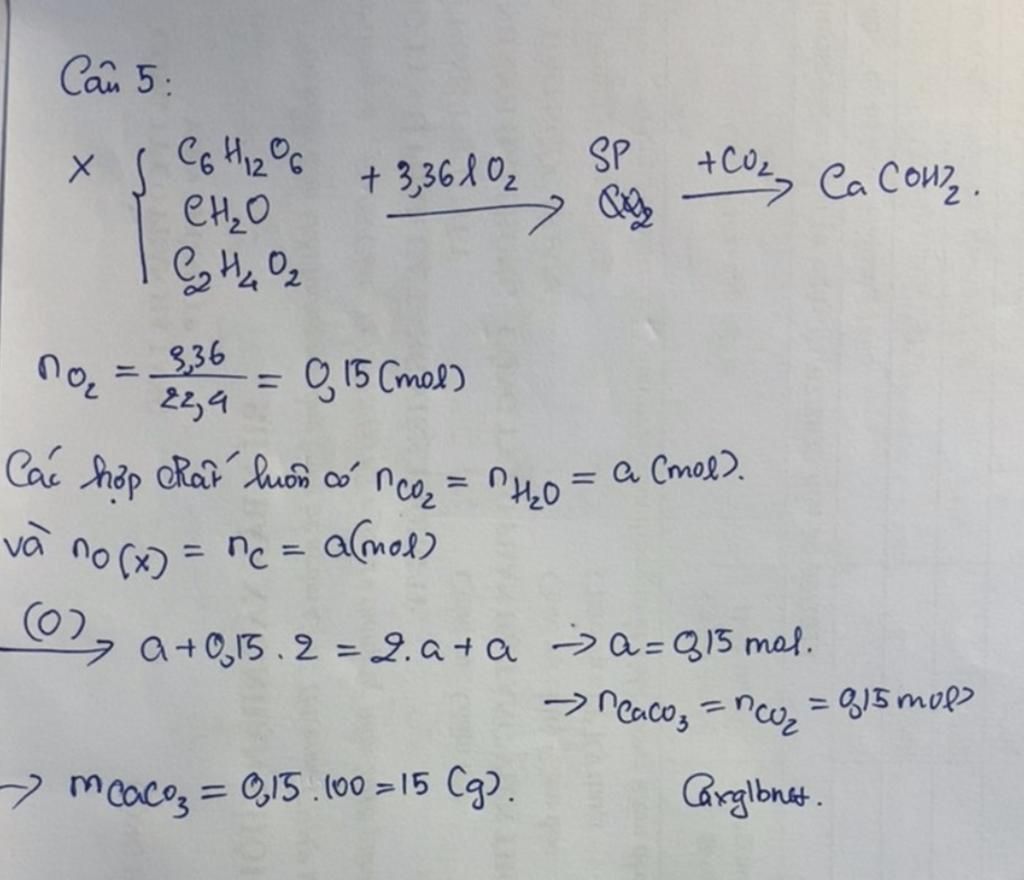 Câu 5:
X { C6H12O6 + 3,36 l O2 → SP +CO2 → Ca(OH)2.
CH2O
C2H4O2
nO2 = 3,36 / 22,4 = 0,15 (mol)
Các hợp chất luôn có nCO2 = nH2O = a (mol).
và nO(X) = nC = a (mol)
(O) → a + 0,15 . 2 = 2.a + a → a = 0,15 mol.
→ nCaCO3 = nCO2 = 0,15 mol
→ mCaCO3 = 0,15 . 100 = 15 (g).